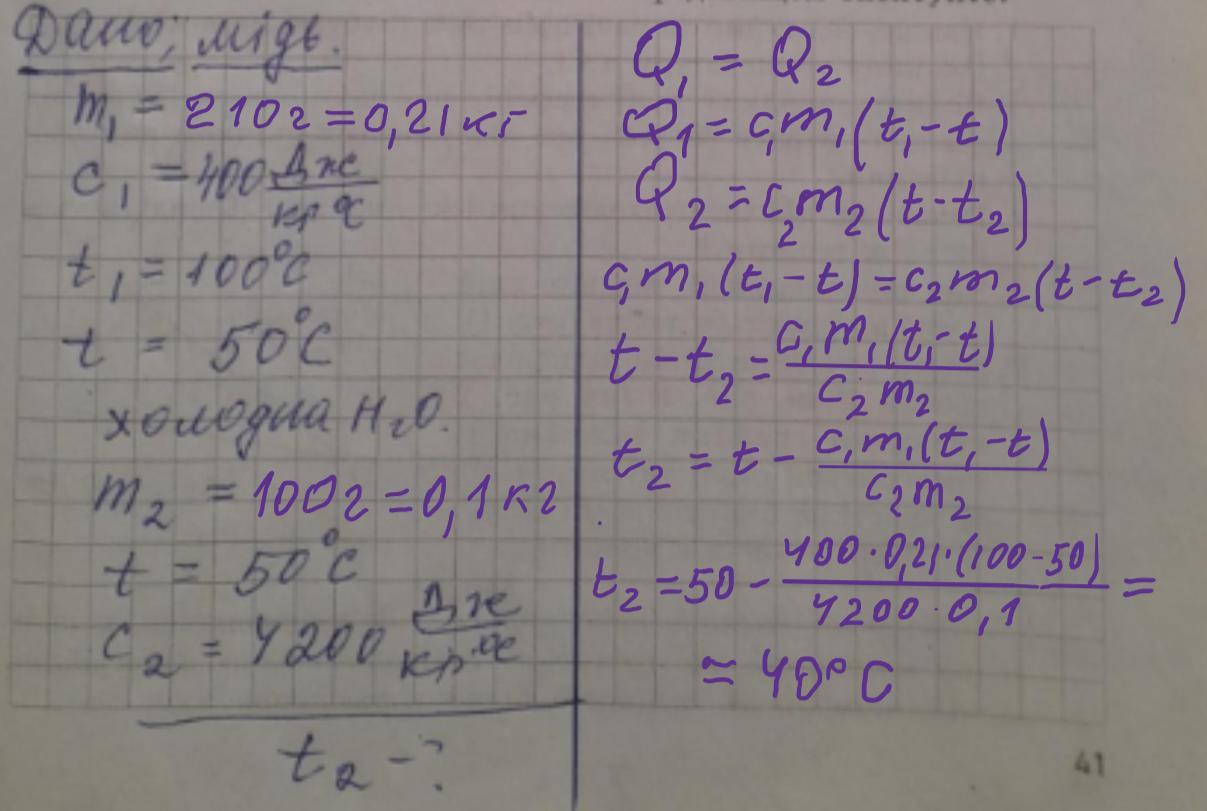 Дано; мідь.
m₁ = 210г = 0,21кг
c₁ = 400 Дж/кг°С
t₁ = 100°С
t = 50°С
холодна H₂O.
m₂ = 100г = 0,1кг
t = 50°С
c₂ = 4200 Дж/кг°С
t₂ - ?
Q₁ = Q₂
Q₁ = c₁m₁(t₁-t)
Q₂ = c₂m₂(t-t₂)
c₁m₁(t₁-t) = c₂m₂(t-t₂)
t - t₂ = c₁m₁(t₁-t)/c₂m₂
t₂ = t - c₁m₁(t₁-t)/c₂m₂
t₂ = 50 - 400·0,21·(100-50)/4200·0,1 =
≃ 40°C
41